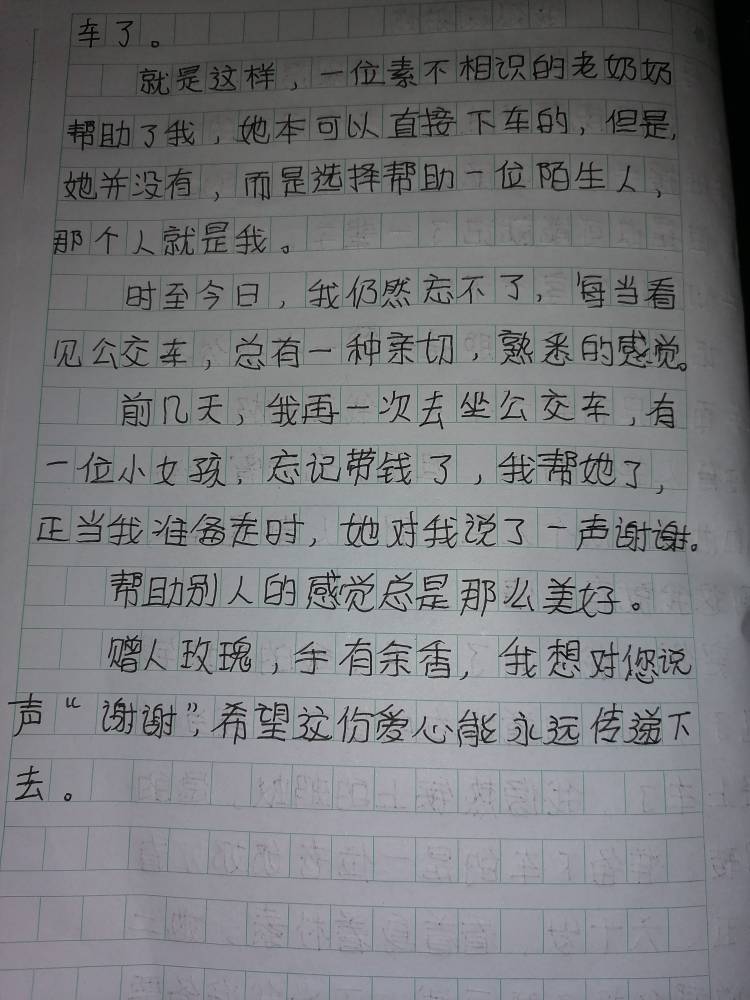 车了。
就是这样，一位素不相识的老奶奶
帮助了我，她本可以直接下车的，但是，
她并没有，而是选择帮助一位陌生人，
那个人就是我。
时至今日，我仍然忘不了，每当看
见公交车，总有一种亲切，熟悉的感觉。
前几天，我再一次去坐公交车，有
一位小女孩，忘记带钱了，我帮她了，
正当我准备走时，她对我说了一声谢谢。
帮助别人的感觉总是那么美好。
赠人玫瑰，手有余香，我想对您说
声“谢谢”，希望这份爱心能永远传递下
去。